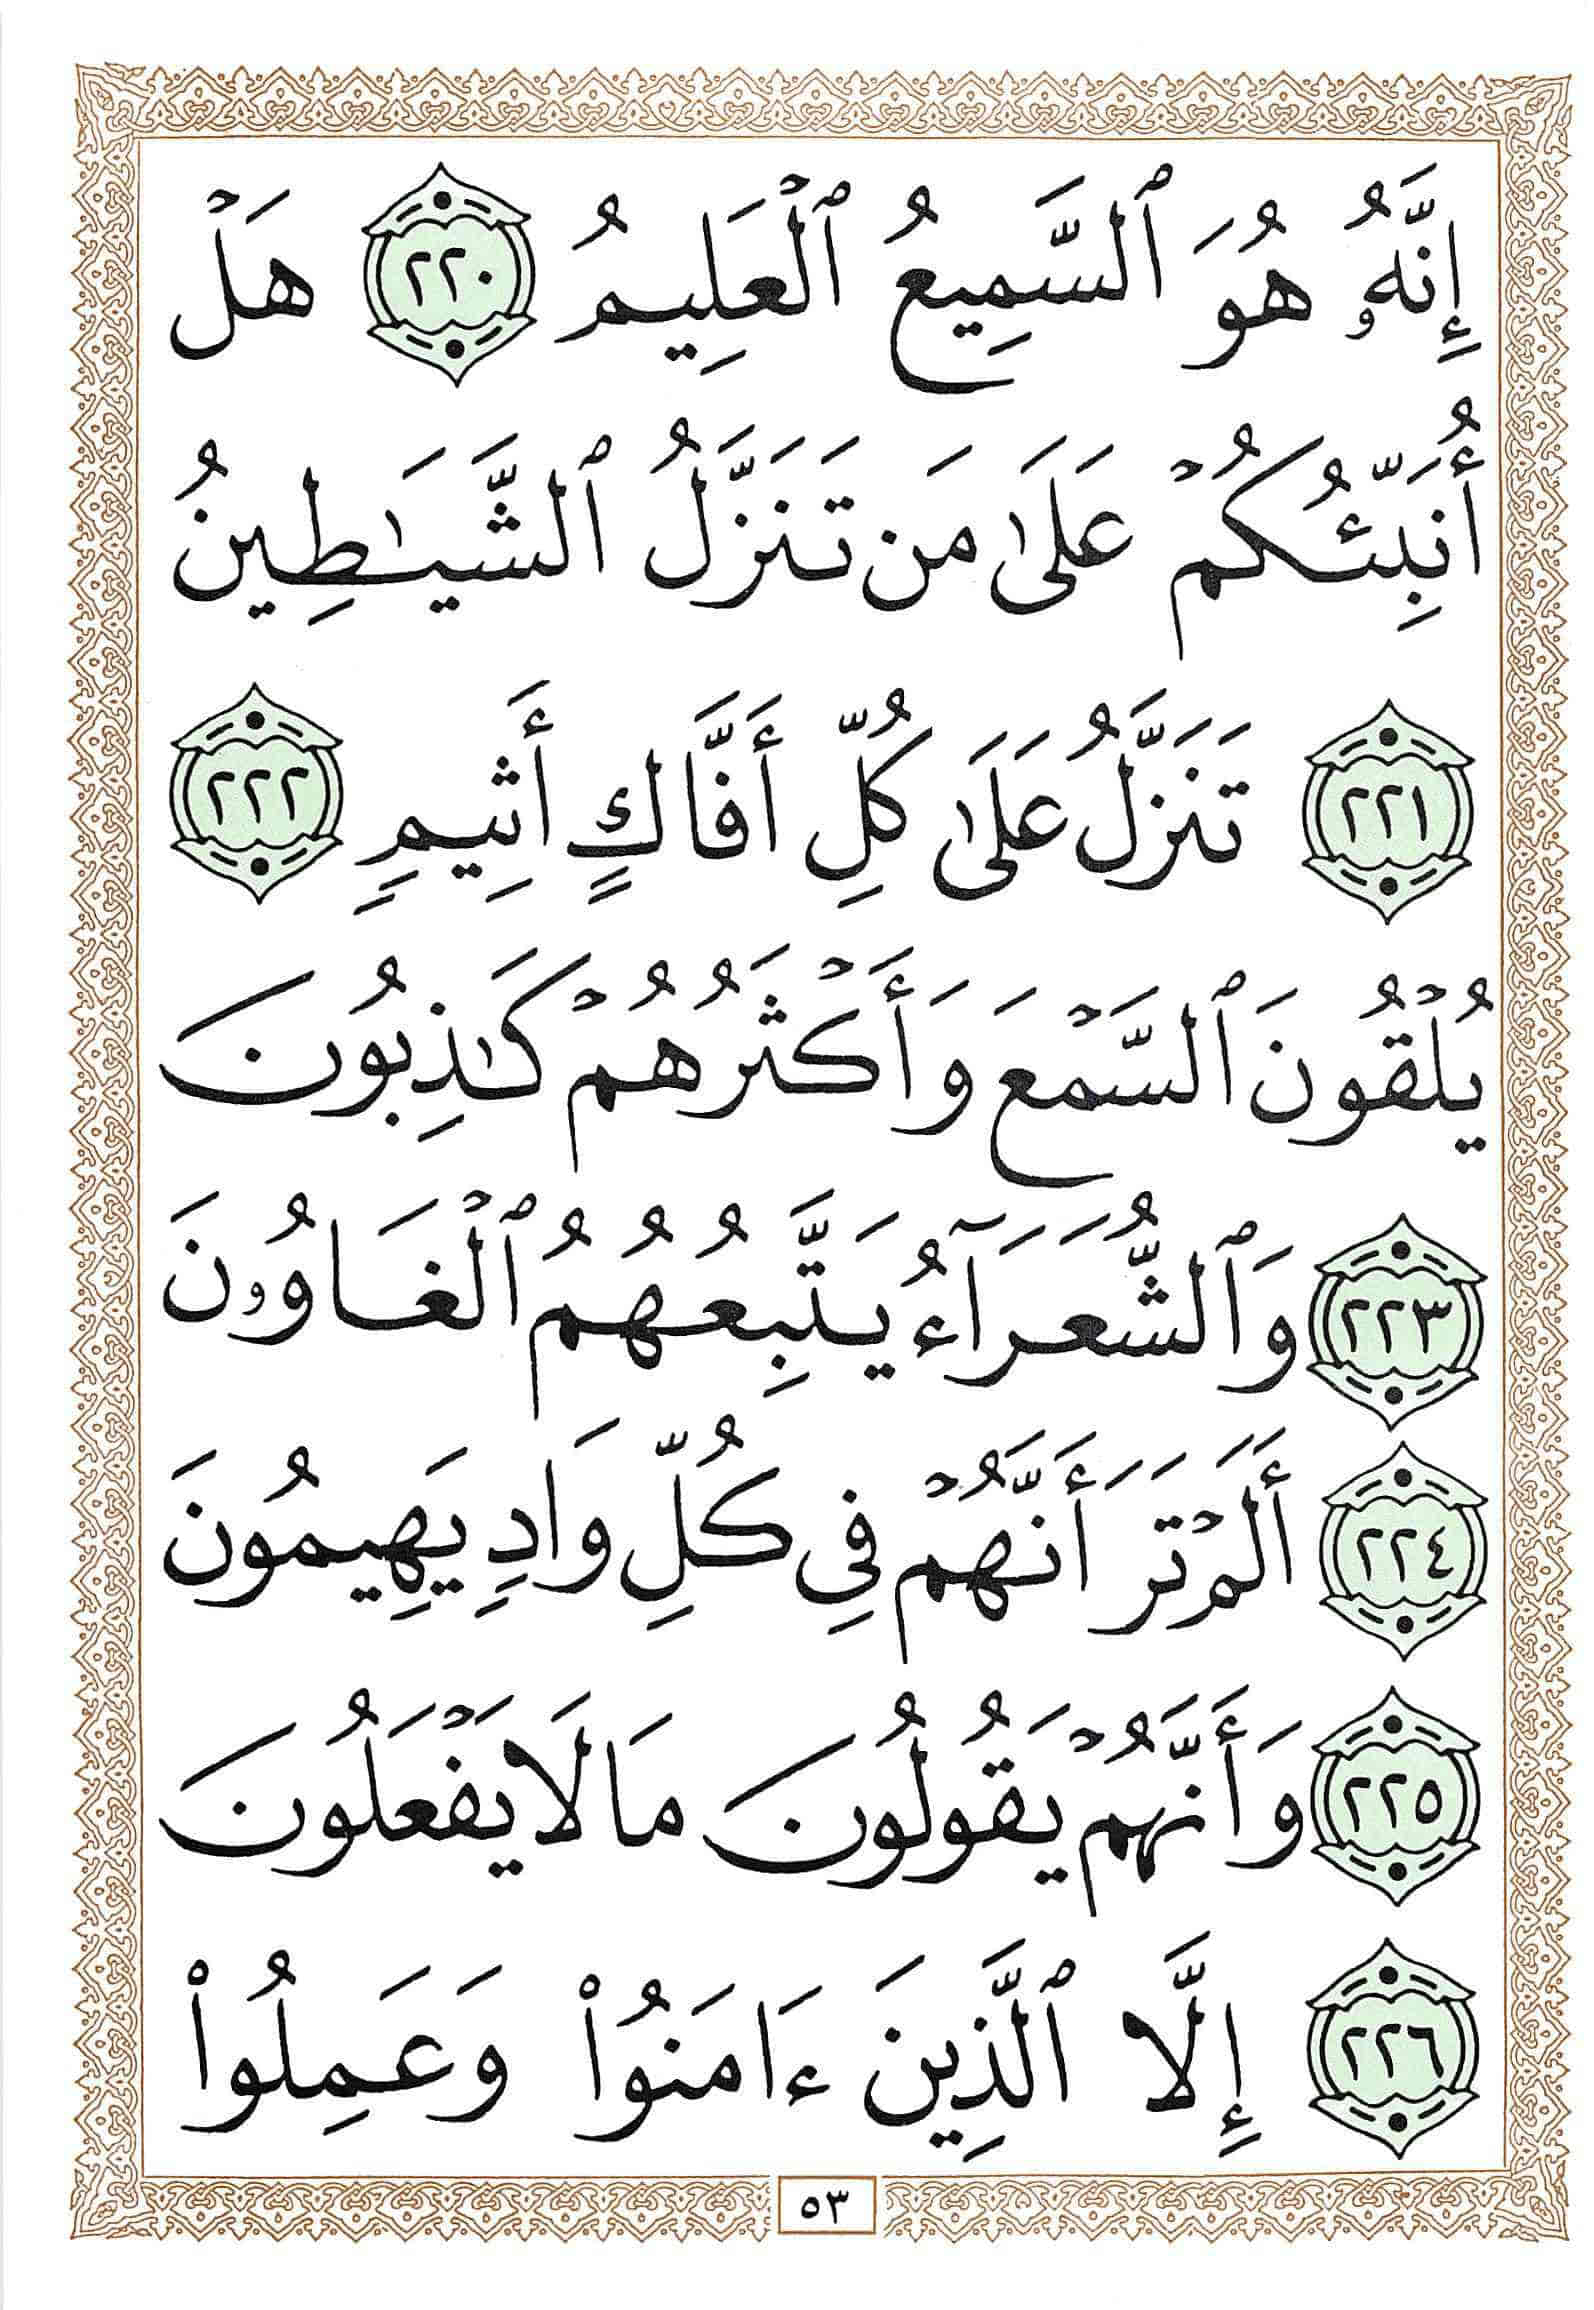 إِنَّهُۥ هُوَ ٱلسَّمِيعُ ٱلْعَلِيمُ ٢٢٠ هَلْ
أُنَبِّئُكُمْ عَلَىٰ مَن تَنَزَّلُ ٱلشَّيَـٰطِينُ
٢٢١ تَنَزَّلُ عَلَىٰ كُلِّ أَفَّاكٍ أَثِيمٍ ٢٢٢
يُلْقُونَ ٱلسَّمْعَ وَأَكْثَرُهُمْ كَـٰذِبُونَ
٢٢٣ وَٱلشُّعَرَآءُ يَتَّبِعُهُمُ ٱلْغَاوُۥنَ
٢٢٤ أَلَمْ تَرَ أَنَّهُمْ فِى كُلِّ وَادٍ يَهِيمُونَ
٢٢٥ وَأَنَّهُمْ يَقُولُونَ مَا لَا يَفْعَلُونَ
٢٢٦ إِلَّا ٱلَّذِينَ ءَامَنُوا۟ وَعَمِلُوا۟
٥٣